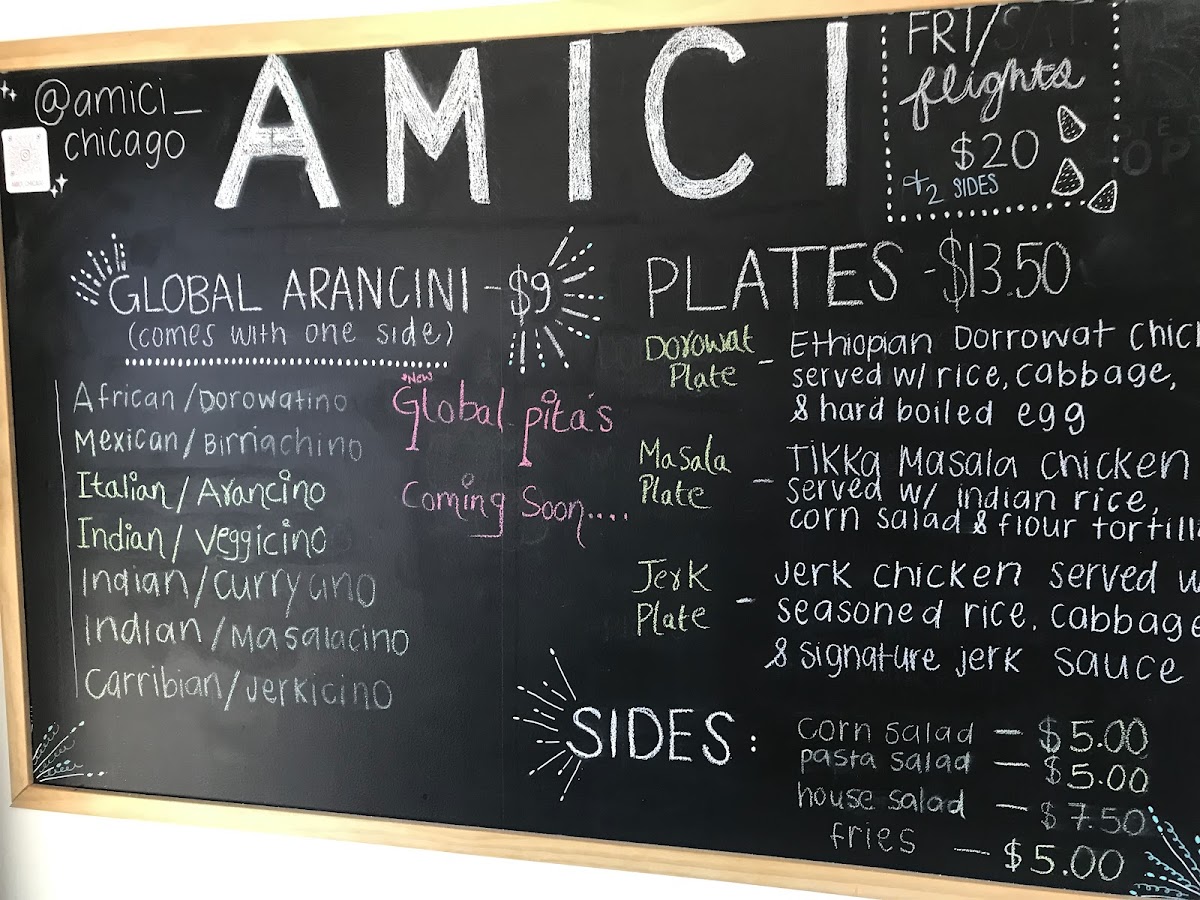 @amici_
chicago
AMICI
FRI/SAT
flights
$20
+2 SIDES
GLOBAL ARANCINI - $9
(comes with one side)
African/Dorowatino
Mexican/Birriachino
Italian/Arancino
Indian/Veggicino
Indian/Curryano
Indian/Masalacino
Carribian/Jerkicino
New
Global pita's
Coming Soon....
PLATES - $13.50
Dorowat
Plate
- Ethiopian Dorrowat Chic
served w/ rice, cabbage,
& hard boiled egg
Masala
Plate
- Tikka Masala chicken
served w/ indian rice,
corn salad & flour tortill
Jerk
Plate
- Jerk chicken served w
seasoned rice, cabbage
& signature jerk sauce
SIDES:
corn salad - $5.00
pasta salad - $5.00
house salad - $7.50
fries - $5.00